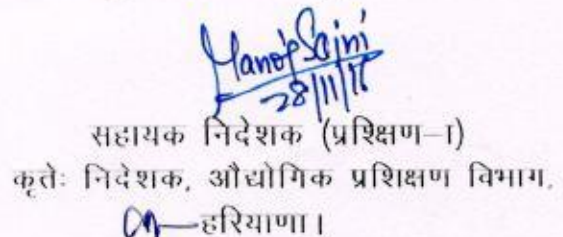 Manoj Saini
28/11/18
सहायक निदेशक (प्रश्क्षिण–I)
कृतेः निदेशक, औद्योगिक प्रशिक्षण विभाग,
हरियाणा।